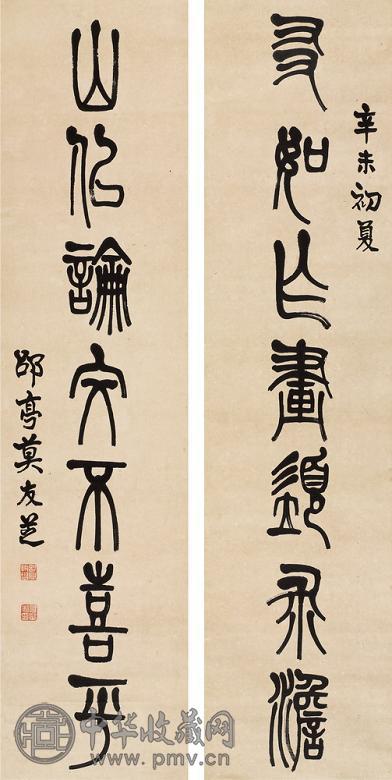 辛未初夏
友如作畫須求澹
山似論文不喜平
郘亭莫友芝
中华收藏网
www.pmv.cn